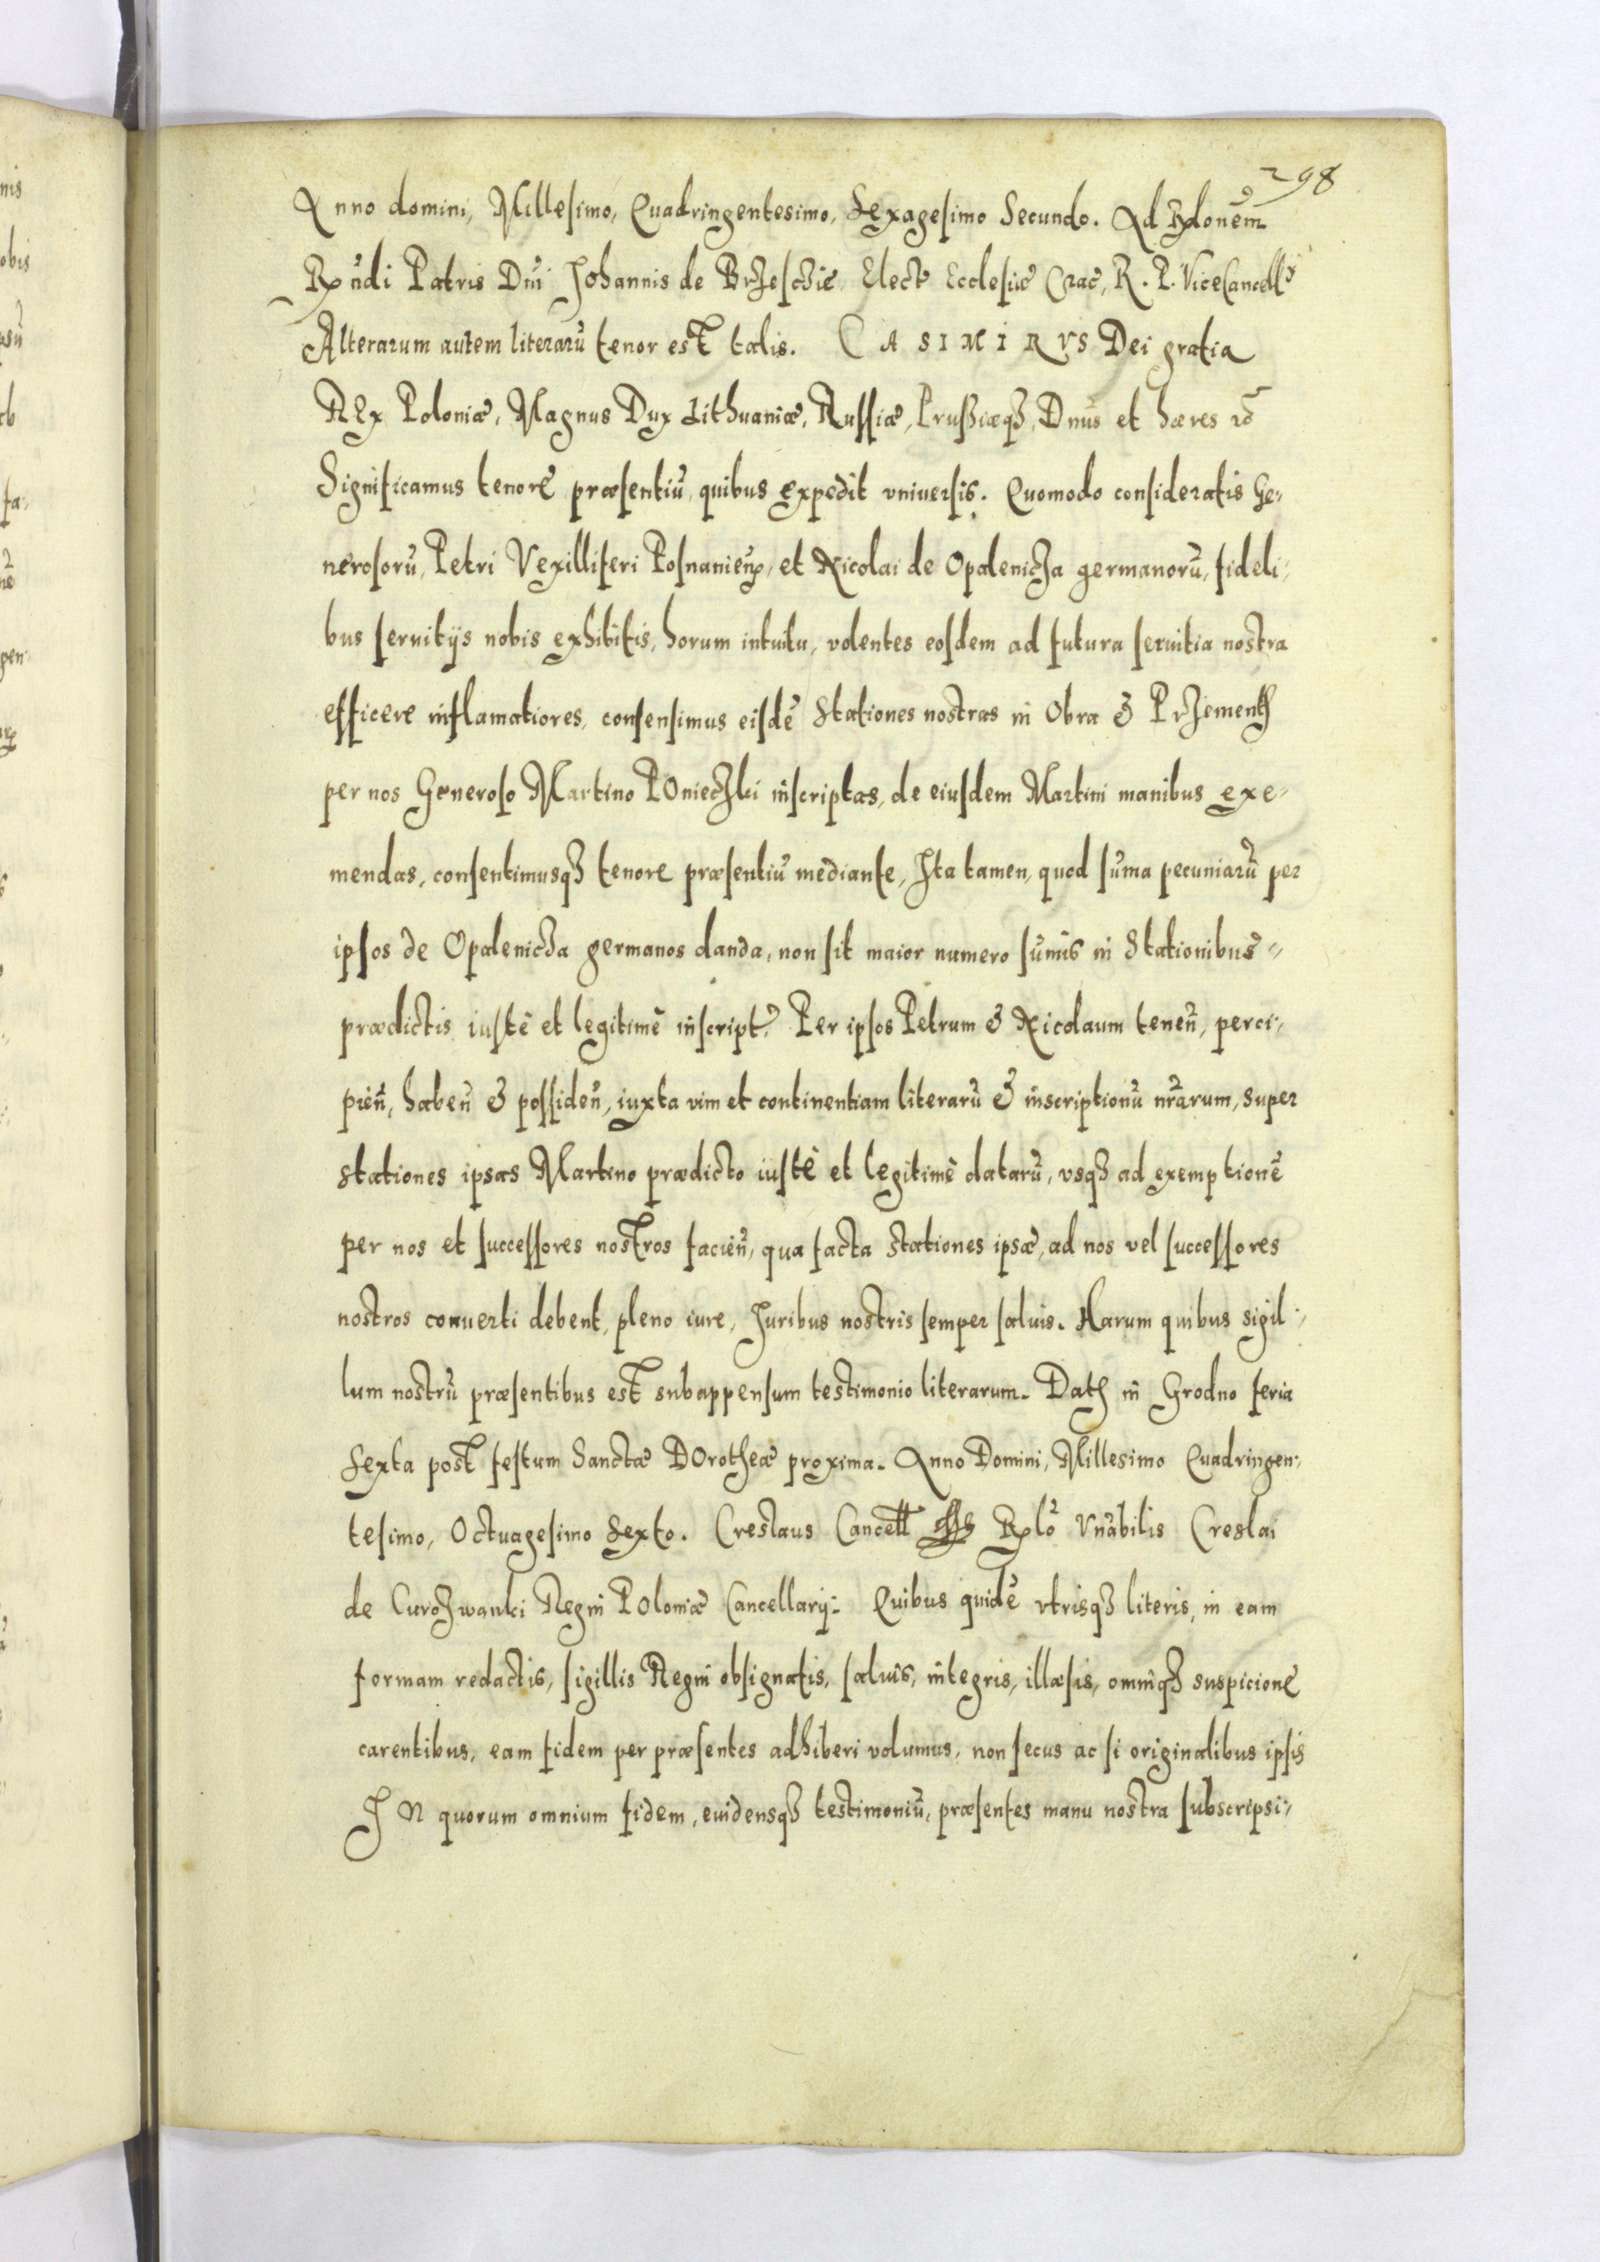 298
Anno domini, Millesimo, Quadringentesimo, Sexagesimo Secundo. Ad
Rxndi Patris Dni Johannis de Brzeschie Elect Ecclesiæ Crac, R. P. ViceCancell
Alterarum autem literarũ tenor est talis. CASIMIRVS Dei gratia
REx Poloniæ, Magnus Dux Lithuaniæ, Russiæ, Prussiæqꝫ, Dnus et hæres
Significamus tenorẽ præsentiũ quibus expedit vniuersis. Quomodo consideratis Ge-
nerosorũ, Petri Vexilliferi Posnanieñ, et Nicolai de Opalenicza germanorũ, fideli-
bus seruitijs nobis exhibitis, horum intuitu, volentes eosdem ad futura seruitia nostra
efficere inflamatiores, consensimus eisdẽ Stationes nostras in Obra & Przementh
per nos Generoso Martino POnieczki inscriptas, de eiusdem Martini manibus exe-
mendas, consentimusqꝫ tenore præsentiũ mediante, Ita tamen, quod sũma pecuniarũ per
ipsos de Opalenicza germanos danda, non sit maior numero sũmis in Stationibus
prædictis iustè et legitimè inscript. Per ipsos Petrum & Nicolaum teneñ, perci-
pieñ, habeñ & possideñ, iuxta vim et continentiam literarũ & inscriptionũ nr̃arum, super
stationes ipsas Martino prædicto iustè et legitimè datarũ, vsqꝫ ad exemptionẽ
per nos et successores nostros facieñ, qua facta stationes ipsæ, ad nos vel successores
nostros conuerti debent, pleno iure, Juribus nostris semper saluis. Harum quibus sigil-
lum nostrũ præsentibus est subappensum testimonio literarum. Dath in Grodno feria
Sexta post festum Sanctæ DOrotheæ proxima. Anno Domini, Millesimo Quadringen-
tesimo, Octuagesimo Sexto. Creslaus Cancell Rxlõ Vñabilis Creslai
de Curozwanki Regni POloniæ Cancellarij. Quibus quidẽ vtrisqꝫ literis, in eam
formam redactis, sigillis Regni obsignatis, saluis, integris, illæsis, omniqꝫ suspicionẽ
carentibus, eam fidem per præsentes adhiberi volumus, non secus ac si originalibus ipsis
IN quorum omnium fidem, euidensqꝫ testimoniũ, præsentes manu nostra subscripsi-